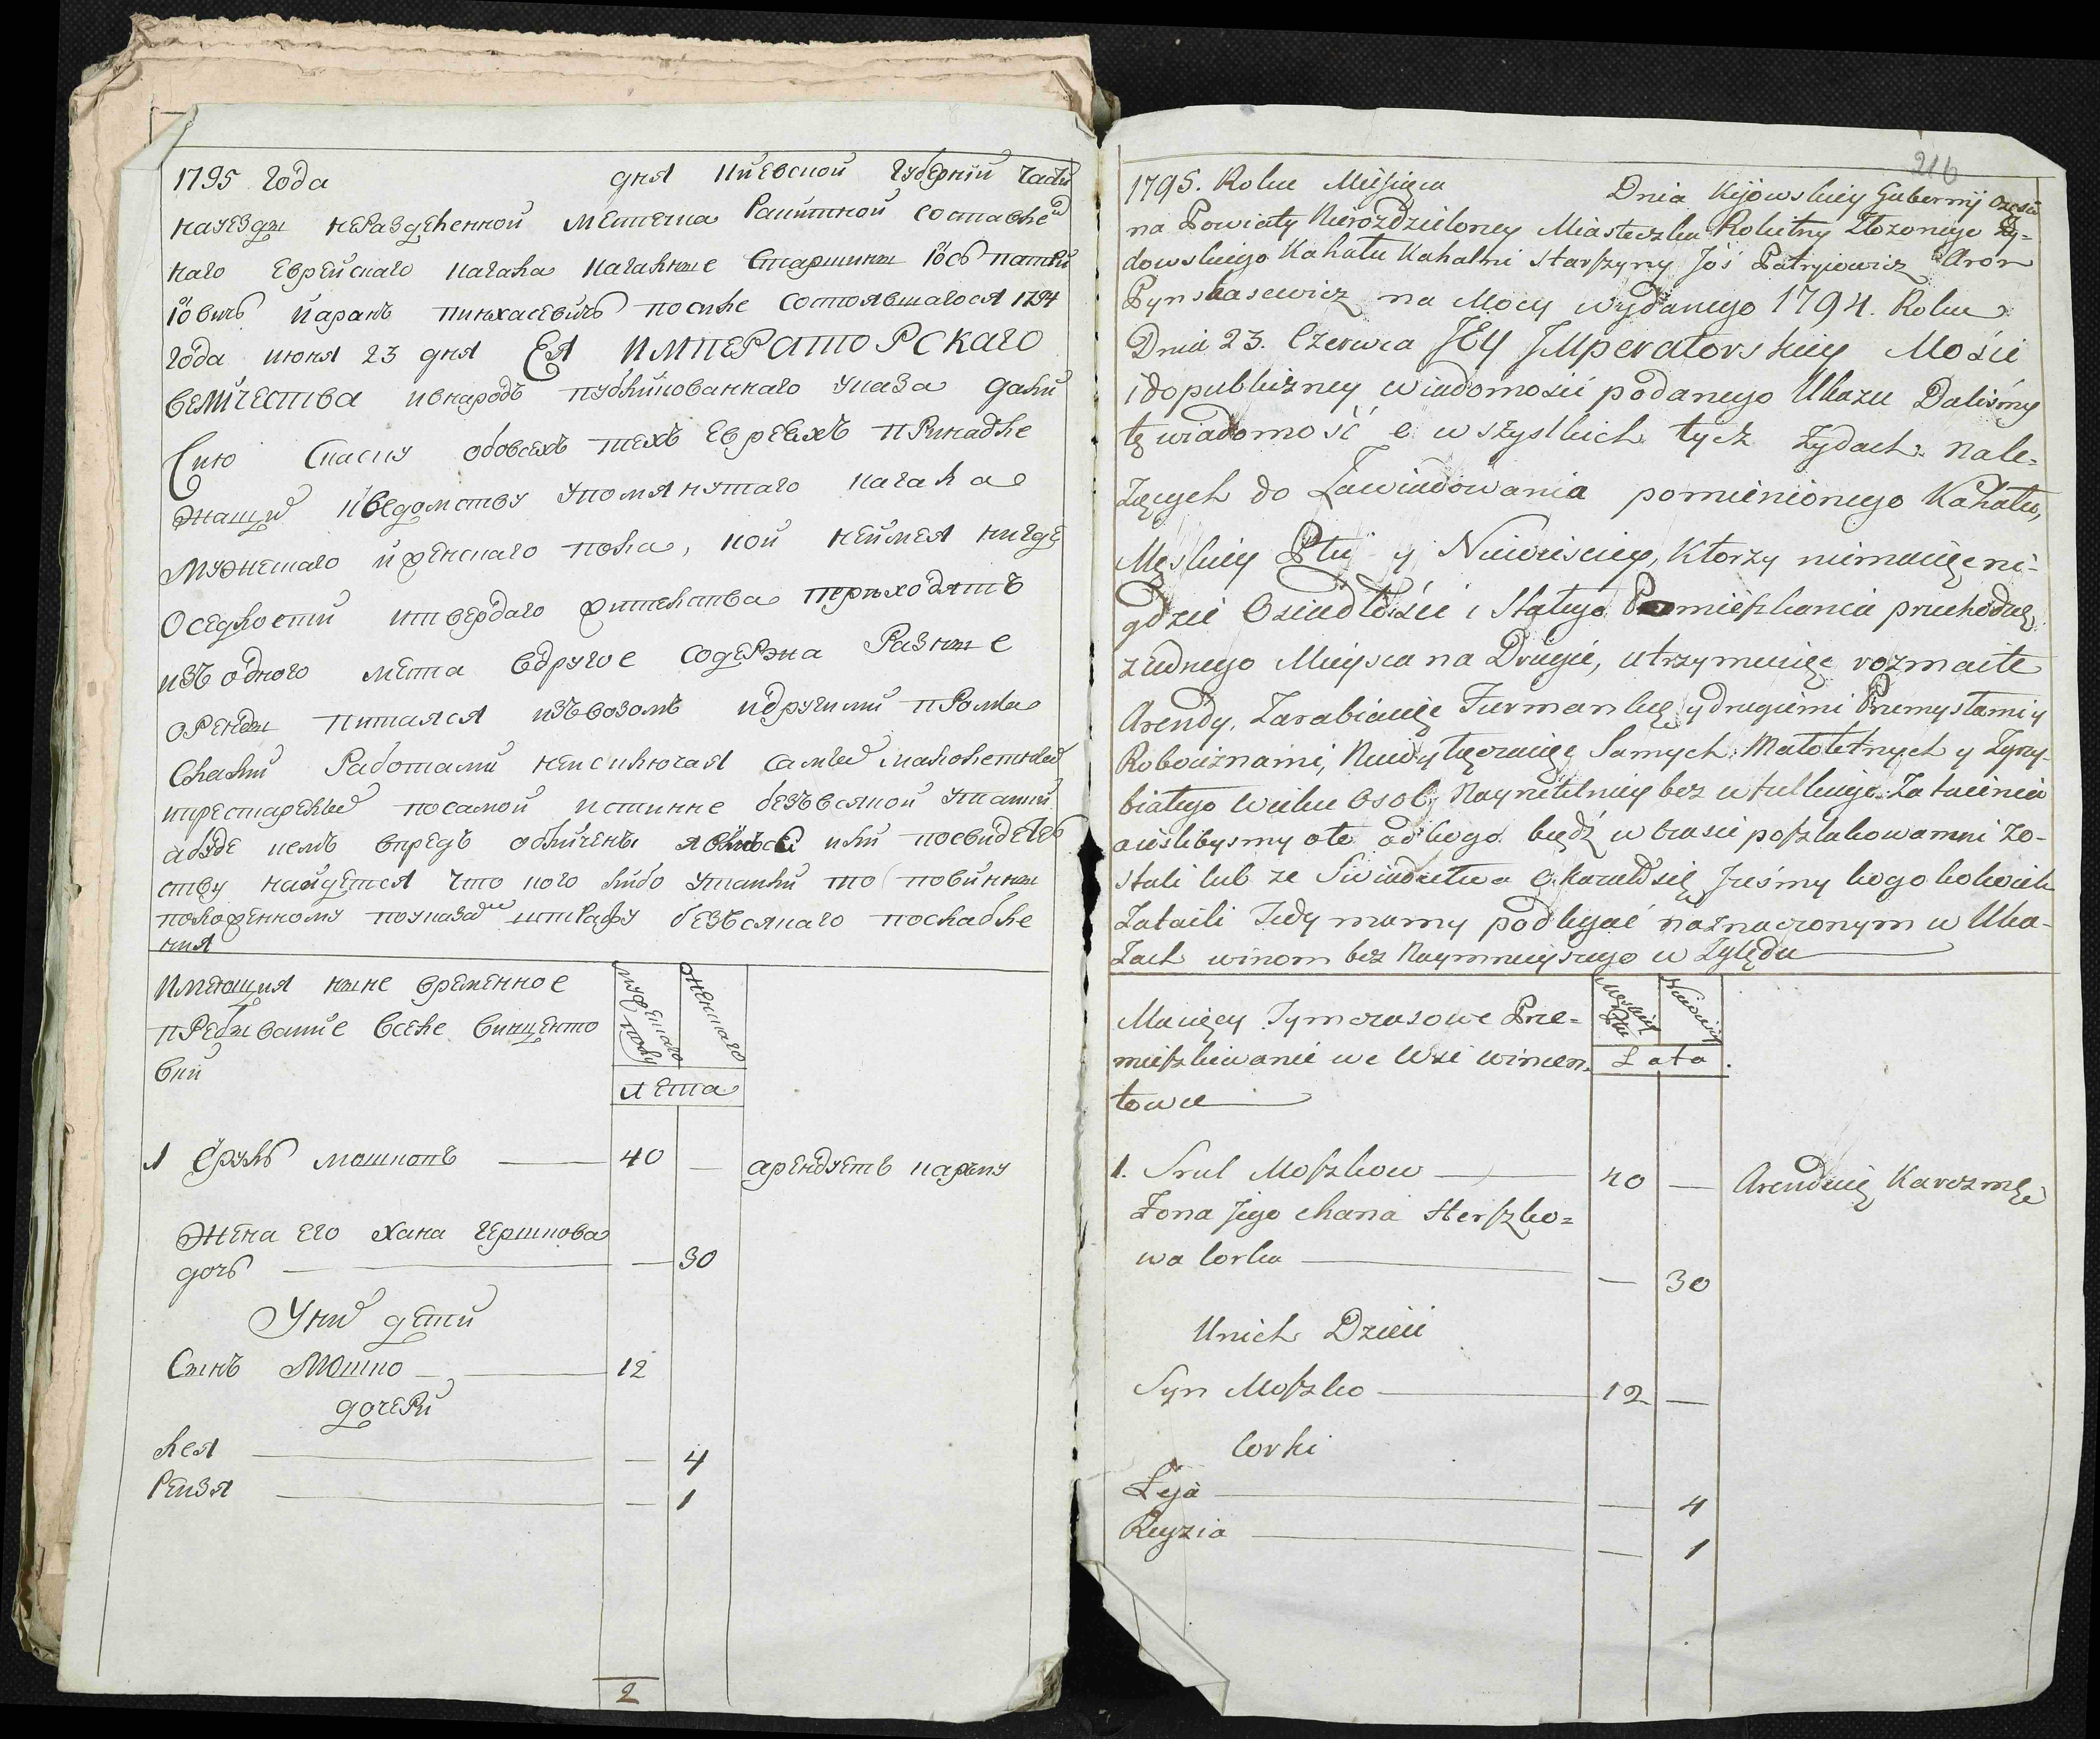 1795 года дня Киевской Губернии части
науезды неразделенной местечка Ракитной составлен
наго Еврейскаго кагала кагалные Старшины Іось патрій
іовичъ йаронъ пинхасевичъ посиле состоявшагося 1794
года июня 23 дня Ея ИМПЕРАТОРСКАГО
величества ивнародъ публикованнаго указа дали
Сию Скаску обовсехъ техъ евреехъ принадле
жащих кведомству упомянутаго кагала
Мужескаго иженскаго пола, кои неимея нигде
Оседлости итвердаго жителства переходятъ
изъ одного места вдругое содержа Разные
оренды питаяся извозомъ идругими промы
слами Работами неисключая самых малолетных
ипрестарелых посамой истинне безъвсякой утайки
абуде кемъ впредь обличены явимъся или посвидетел
ству найдется что кого либо утаили то повинны
положенному поуказам штрафу безвсякаго послабле
ния
Имеющия ныне временное
пребывание вселе винценто
вки
мужескаго полу
женскаго
лета
1 Сруль мошковъ 40 — арендуетъ карчму
Жена его Хана Гершкова
дочь — 30
У них дети
Сынъ Мошко 12
дочери
лея — 4
Рейзя — 1
2
216
1795. Roku Miesięca Dnia Kijowskiey Gubernij części
na Powiaty Nierozdzieloney Miasteczka Rokitny Złozonego Ży-
dowskiego Kahału Kahalni Starszyny Joś Patryiowicz Aron
Pynskasewicz na Mocy wydanego 1794. Roku
Dnia 23. Czerwca JEY JMperatorskiey Mości
i dopublizney wiadomości podanego Ukazu Daliśmy
tę wiadomość o wszystkich tych Żydach nale=
żących do Zawiadowania pomienionego Kahału,
Męskiey Płci y Niewiesciey, Ktorzy niemaiąc ni-
gdzie Osiadłości i Stałego Pomieszkania przechodzą
z iednego Mieysca na Drugie, utrzymuiąc rozmaite
Arendy, Zarabiaiąc Furmanką y drugiemi Przemysłami y
Robociznami, Niewyłączaiąc Samych Małoletnych y Zgrzy-
białego Wieku Osob, Nayrzetelniey bez wszelkiego Zataienia
a ieslibysmy o to od kogo bądź w czasie poszlakowanni zo-
stali lub ze Swiadectwa Okazałosię Jześmy kogo kolwiek
Zataili Tedy mamy podlegać naznaczonym w Uka-
zach winom bez Naymnieyszego w Zględu
Maiący Tymczasowe Prze=
mieszkiwanie we Wsi wincen-
towce
Męskiey Płci
Niewiesciey
Lata.
1. Srul Moszkow 40 — Arenduię Karczmę
Żona Jego Chana Herszko=
wa Corka — 30
Unich Dzieci
Syn Moszko 12 —
Corki
Leja — 4
Reyzia — 1